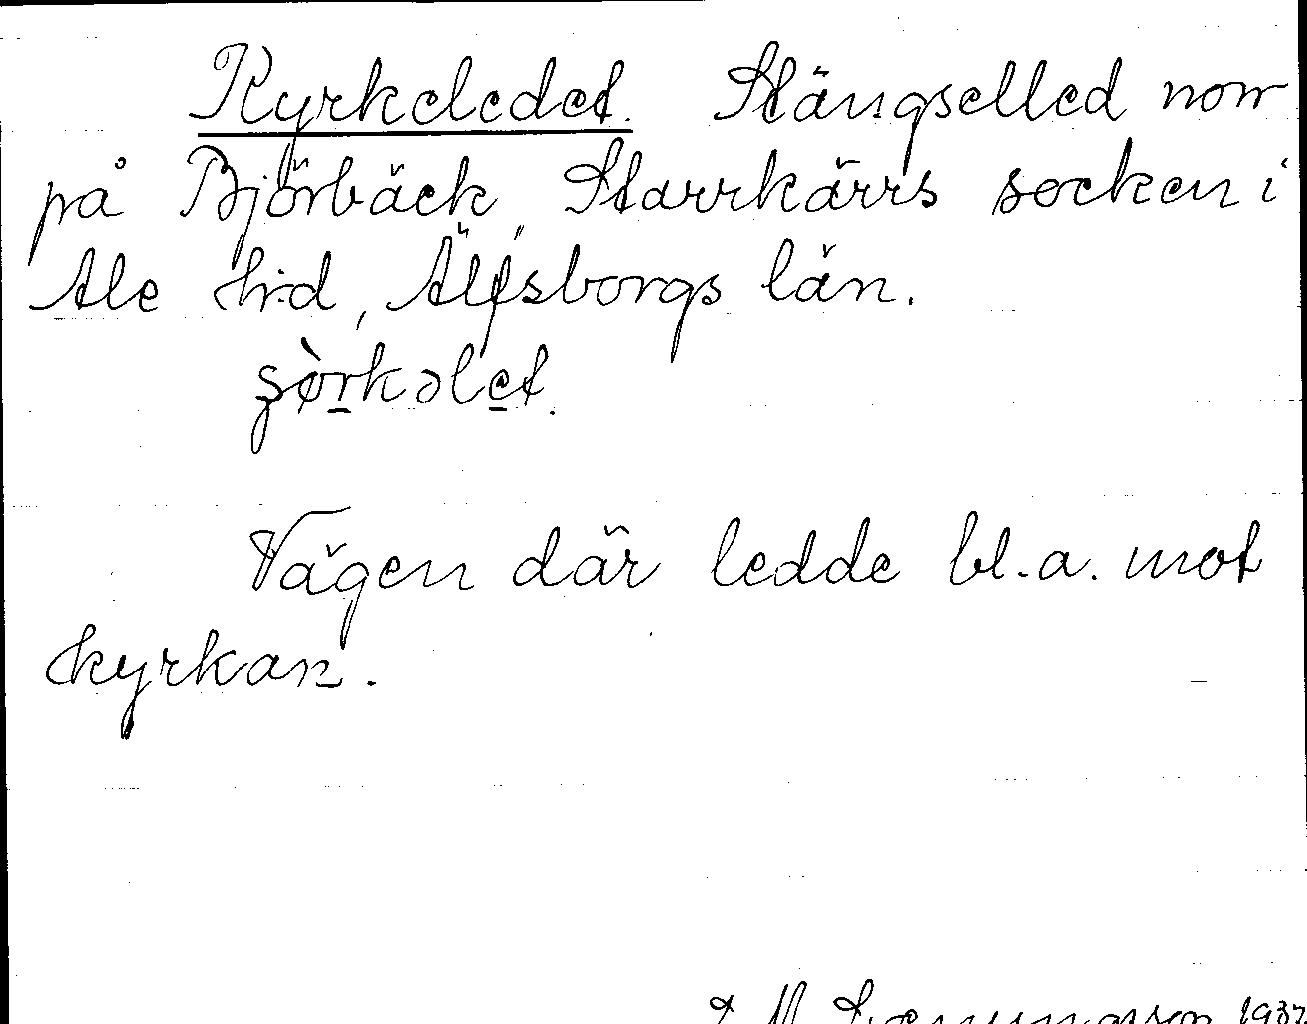 Kyrkeledet. Stängselled norr
på Björbäck, Starrkärrs socken i
Ale hrd, Älfsborgs län.
Vägen där ledde bl. a. mot
kyrkan.
1937